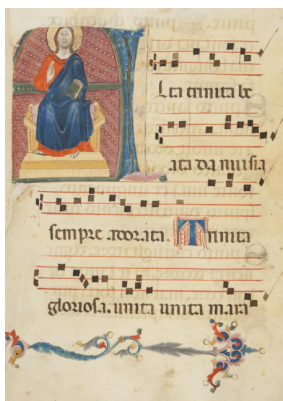 Alta trinita be
ata da nui sia
sempre. adorata. Trinita
gloriosa. unita unita mara